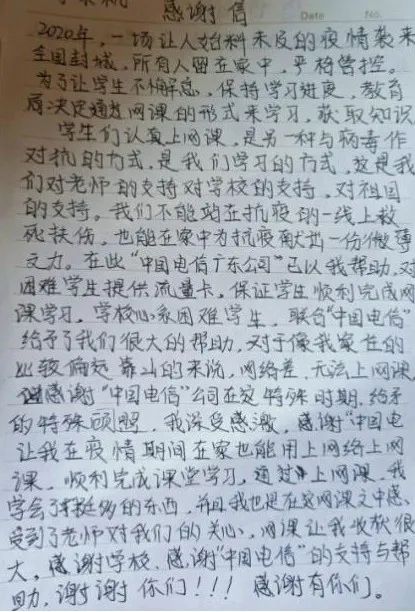 感谢信
Date No.
2020年，一场让人始料未及的疫情袭来
全国封城，所有人留在家中，严格管控。
为了让学生不懈怠，保持学习进度，教育
局决定通过网课的形式来学习，获取知识
学生们认真上网课，是另一种与病毒作
对抗的方式，是我们学习的方式，这是我
们对老师的支持对学校的支持，对祖国
的支持。我们不能站在抗疫的一线上救
死扶伤，也能在家中为抗疫献出一份微薄
之力。在此"中国电信广东公司"已以我帮助，对
困难学生提供流量卡，保证学生顺利完成网
课学习，学校心系困难学生，联合"中国电信"
给予了我们很大的帮助，对于像我家住的
比较偏远靠山的来说，网络差，无法上网课，
感谢"中国电信"公司在这特殊时期，给予
的特殊照，我深受感激，感谢"中国电
让我在疫情期间在家也能用上网络上网
课，顺利完成课堂学习，通过上网课，我
学会了挺多的东西，并且我也是在这网课之中感
受到了老师对我们的关心，网课让我收获很
大，感谢学校，感谢"中国电信"的支持与帮
助，谢谢你们！！！感谢有你们。